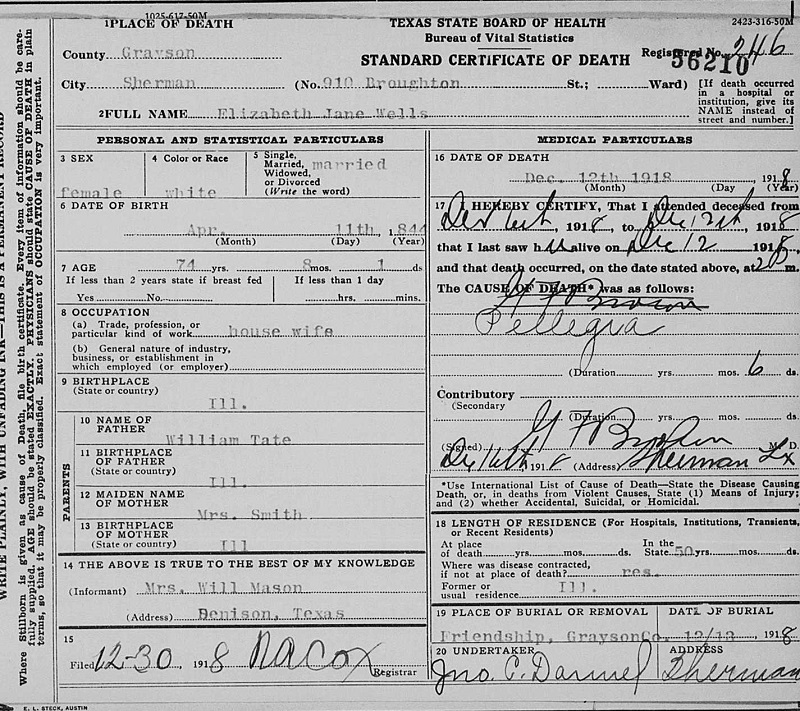 1025-617-50M
2423-316-50M
1PLACE OF DEATH
TEXAS STATE BOARD OF HEALTH
Bureau of Vital Statistics
STANDARD CERTIFICATE OF DEATH
Registered No. 246
36210
County Grayson
City Sherman (No. 910 Broughton St.; Ward)
[If death occurred in a hospital or institution, give its NAME instead of street and number.]
2FULL NAME Elizabeth Jane Wells
PERSONAL AND STATISTICAL PARTICULARS
3 SEX female
4 Color or Race white
5 Single, Married, Widowed, or Divorced (Write the word) married
6 DATE OF BIRTH
Apr. 11th, 1844
(Month) (Day) (Year)
7 AGE 74 yrs. 8 mos. 1 ds
If less than 2 years state if breast fed
Yes No.
If less than 1 day
hrs. mins.
8 OCCUPATION
(a) Trade, profession, or
particular kind of work house wife
(b) General nature of industry,
business, or establishment in
which employed (or employer)
9 BIRTHPLACE
(State or country)
Ill.
PARENTS
10 NAME OF FATHER
William Tate
11 BIRTHPLACE OF FATHER
(State or country)
Ill.
12 MAIDEN NAME OF MOTHER
Mrs. Smith
13 BIRTHPLACE OF MOTHER
(State or country) Ill
14 THE ABOVE IS TRUE TO THE BEST OF MY KNOWLEDGE
(Informant) Mrs. Will Mason
(Address) Denison, Texas
15
Filed 12-30, 1918 R A Cox
Registrar
MEDICAL PARTICULARS
16 DATE OF DEATH
Dec. 12th 1918 , 1918
(Month) (Day (Year)
17 I HEREBY CERTIFY, That I attended deceased from
Dec 6th, 1918, to Dec 12th, 1918
that I last saw h alive on Dec 12 1918,
and that death occurred, on the date stated above, at m.
The CAUSE OF DEATH* was as follows:
Pellegra
(Duration) yrs. mos. 6 ds.
Contributory
(Secondary
(Duration) yrs. mos. ds.
(Signed) M. D.
Dec 16th 1918 (Address) Sherman Tx
*Use International List of Cause of Death—State the Disease Causing
Death, or, in deaths from Violent Causes, State (1) Means of Injury;
and (2) whether Accidental, Suicidal, or Homicidal.
18 LENGTH OF RESIDENCE (For Hospitals, Institutions, Transients,
or Recent Residents)
At place of death yrs. mos. ds.
In the State 50 yrs. mos. ds.
Where was disease contracted,
if not at place of death? res.
Former or
usual residence Ill.
19 PLACE OF BURIAL OR REMOVAL
DATE OF BURIAL
Friendship, GraysonCo. 12/13 , 1918
20 UNDERTAKER
ADDRESS
Jno. C. Dannel Sherman
WRITE PLAINLY, WITH UNFADING INK—THIS IS A PERMANENT RECORD
Where Stillborn is given as cause of Death, file birth certificate. Every item of information should be care-
fully supplied. AGE should be stated EXACTLY. PHYSICIANS should state CAUSE OF DEATH in plain
terms, so that it may be properly classified. Exact statement of OCCUPATION is very important.
E. L. STECK, AUSTIN